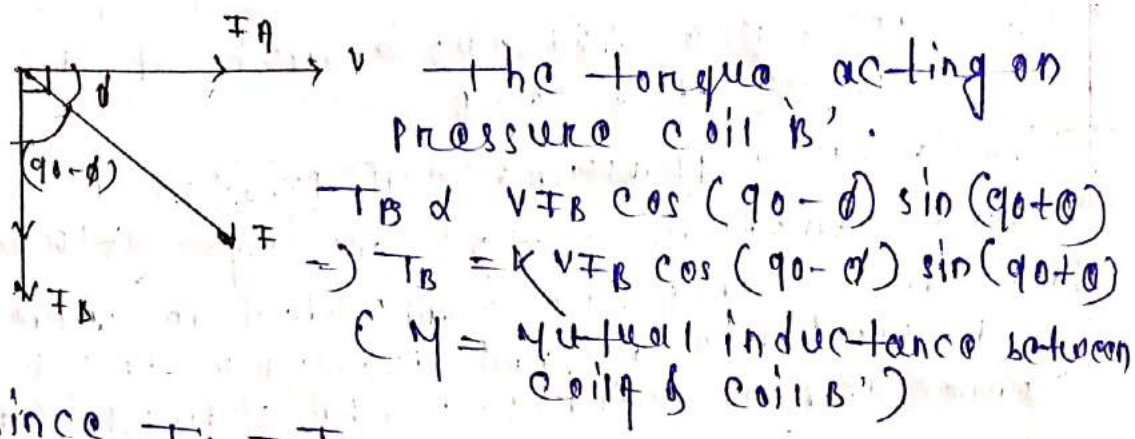 IA
V
ϕ
(90-ϕ)
I
IB
The torque acting on
pressure coil 'B'.
TB α VIB cos (90-ϕ) sin (90+θ)
=) TB = K VIB cos (90-ϕ) sin (90+θ)
(M = Mutual inductance between
coil A & coil B')
ince